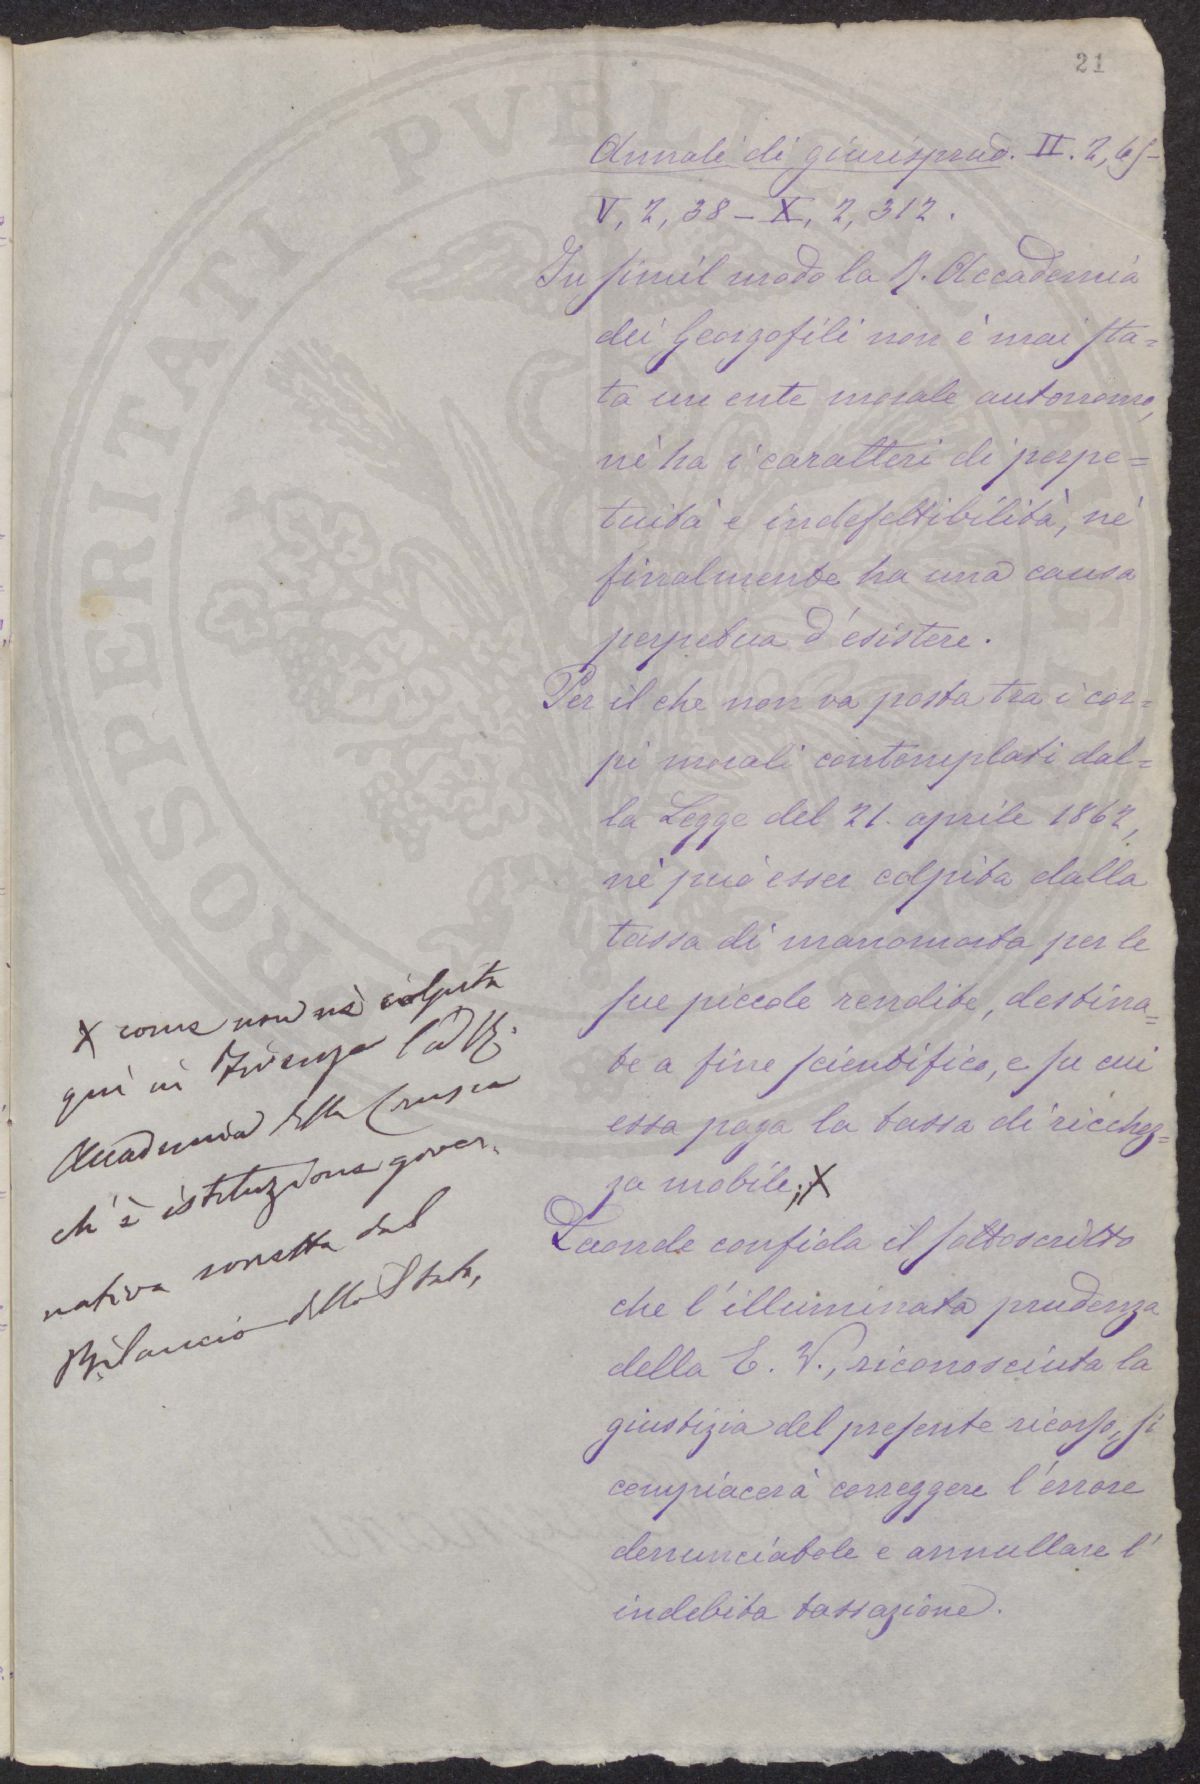 21
Annali di giurisprud. II. 2, 65-
V, 2, 38 - X, 2, 312.
In simil modo la R. Accademia
dei Georgofili non è mai sta=
ta un ente morale autonomo,
nè ha i caratteri di perpe=
tuità e indefettibilità, nè
finalmente ha una causa
perpetua d'esistere.
Per il che non va posta tra i cor=
pi morali contemplati dal=
la Legge del 21. aprile 1862,
nè può esser colpita dalla
tassa di manomorta per le
sue piccole rendite, destina=
te a fine scientifico, e su cui
essa paga la tassa di ricchez=
za mobile; X
X come non n'è colpita
qui in Firenze la R.
Accademia della Crusca
ch'è istituzione gover.
nativa sorretta dal
Bilancio dello Stato,
Laonde confida il sottoscritto
che l'illuminata prudenza
della E. V., riconosciuta la
giustizia del presente ricorso, si
compiacerà correggere l'errore
denunciatole e annullare l'
indebita tassazione.
PROSPERITATI PVBLICAE